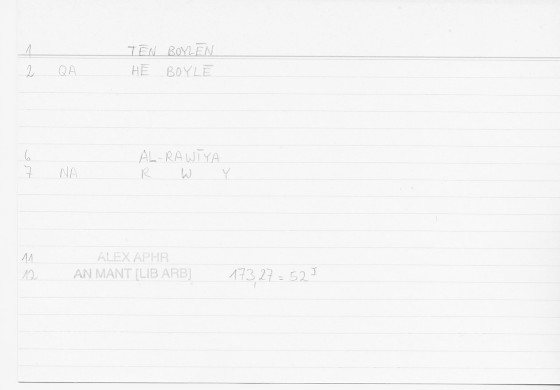 1 TĒN BOYLĒN
2 QA HĒ BOYLĒ
6 AL-RAWĪYA
7 NA R W Y
11 ALEX APHR
12 AN MANT [LIB ARB] 173,27 = 52